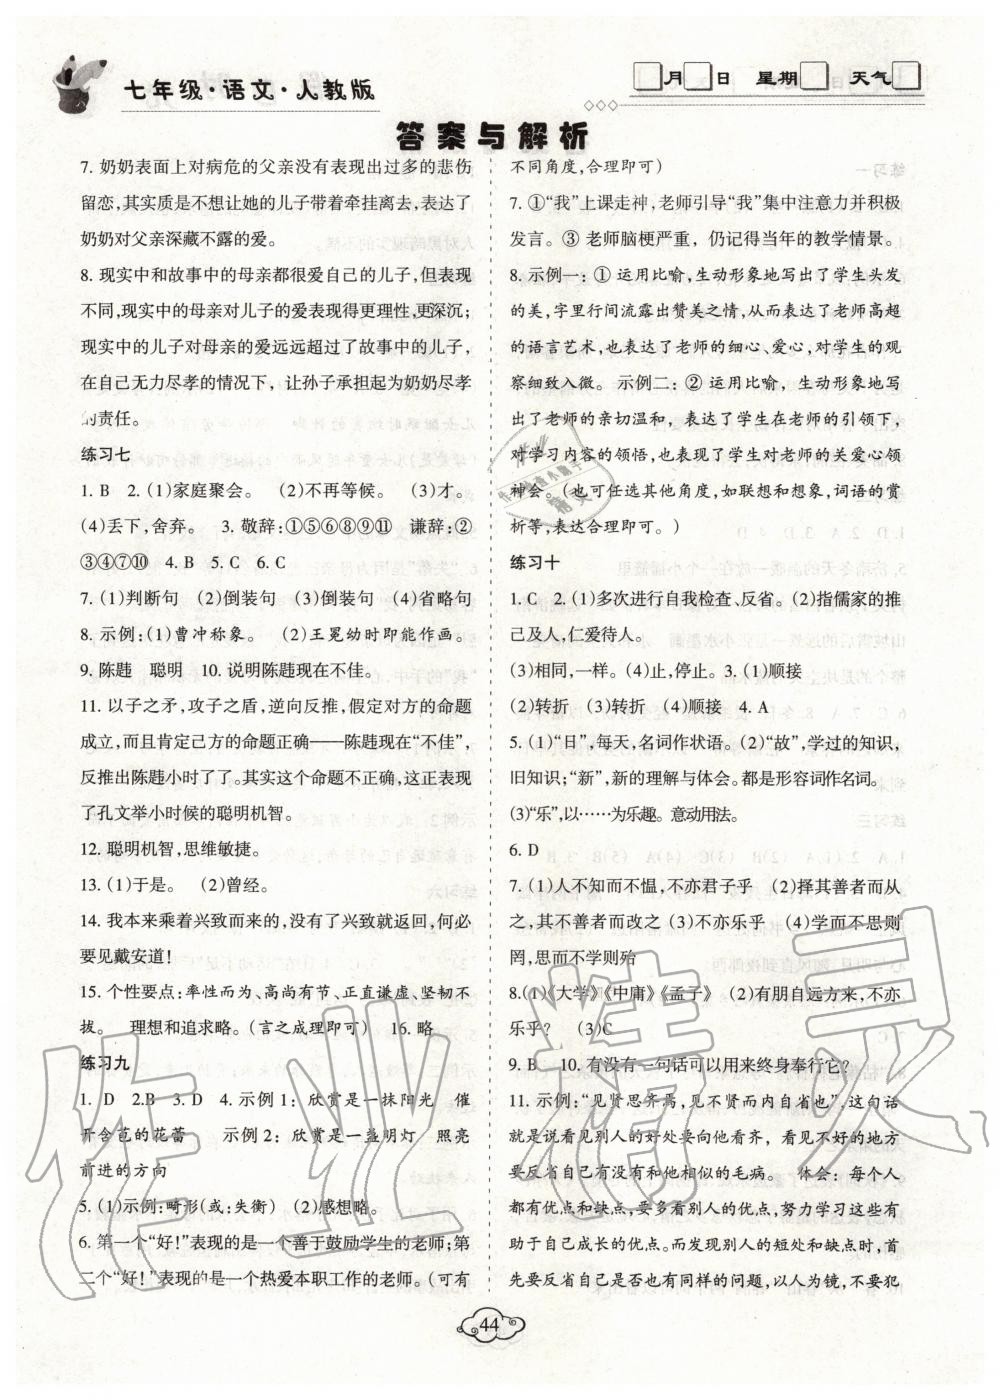 七年级·语文·人教版
月 日 星期 日 天气
答案与解析
7. 奶奶表面上对病危的父亲没有表现出过多的悲伤
留恋,其实质是不想让她的儿子带着牵挂离去,表达了
奶奶对父亲深藏不露的爱。
8. 现实中和故事中的母亲都很爱自己的儿子,但表现
不同,现实中的母亲对儿子的爱表现得更理性,更深沉;
现实中的儿子对母亲的爱远远超过了故事中的儿子,
在自己无力尽孝的情况下,让孙子承担起为奶奶尽孝
的责任。
练习七
1. B 2. (1)家庭聚会。 (2)不再等候。 (3)才。
(4)丢下,舍弃。 3. 敬辞:①⑤⑥⑧⑨⑪ 谦辞:②
③④⑦⑩ 4. B 5. C 6. C
7. (1)判断句 (2)倒装句 (3)倒装句 (4)省略句
8. 示例:(1)曹冲称象。 (2)王冕幼时即能作画。
9. 陈韪 聪明 10. 说明陈韪现在不佳。
11. 以子之矛,攻子之盾,逆向反推,假定对方的命题
成立,而且肯定己方的命题正确——陈韪现在“不佳”,
反推出陈韪小时了了。其实这个命题不正确,这正表现
了孔文举小时候的聪明机智。
12. 聪明机智,思维敏捷。
13. (1)于是。 (2)曾经。
14. 我本来乘着兴致而来的,没有了兴致就返回,何必
要见戴安道!
15. 个性要点:率性而为、高尚有节、正直谦虚、坚韧不
拔。 理想和追求略。(言之成理即可) 16. 略
练习九
1. D 2.B 3. D 4. 示例1:欣赏是一抹阳光 催
开含苞的花蕾 示例2:欣赏是一盏明灯 照亮
前进的方向
5. (1)示例:畸形(或:失衡) (2)感想略。
6. 第一个“好!”表现的是一个善于鼓励学生的老师;第
二个“好!”表现的是一个热爱本职工作的老师。(可有
不同角度,合理即可)
7. ①“我”上课走神,老师引导“我”集中注意力并积极
发言。③ 老师脑梗严重,仍记得当年的教学情景。
8. 示例一:① 运用比喻,生动形象地写出了学生头发
的美,字里行间流露出赞美之情,从而表达了老师高超
的语言艺术,也表达了老师的细心、爱心,对学生的观
察细致入微。示例二:② 运用比喻,生动形象地写
出了老师的亲切温和,表达了学生在老师的引领下,
对学习内容的领悟,也表现了学生对老师的关爱心领
神会。(也可任选其他角度,如联想和想象,词语的赏
析等,表达合理即可。)
练习十
1. C 2. (1)多次进行自我检查、反省。(2)指儒家的推
己及人,仁爱待人。
(3)相同,一样。(4)止,停止。3. (1)顺接
(2)转折 (3)转折 (4)顺接 4. A
5. (1)“日”,每天,名词作状语。(2)“故”,学过的知识,
旧知识;“新”,新的理解与体会。都是形容词作名词。
(3)“乐”,以……为乐趣。意动用法。
6. D
7. (1)人不知而不愠,不亦君子乎 (2)择其善者而从
之,其不善者而改之 (3)不亦乐乎 (4)学而不思则
罔,思而不学则殆
8.(1)《大学》《中庸》《孟子》 (2)有朋自远方来,不亦
乐乎? (3)C
9. B 10. 有没有一句话可以用来终身奉行它?
11. 示例:“见贤思齐焉,见不贤而内自省也”,这句话
就是说看见别人的好处要向他看齐,看见不好的地方
要反省自己有没有和他相似的毛病。 体会:每个人
都有优点和缺点,要多看别人的优点,努力学习这些有
助于自己成长的优点。而发现别人的短处和缺点时,首
先要反省自己是否也有同样的问题,以人为镜,不要犯
44
作业精灵